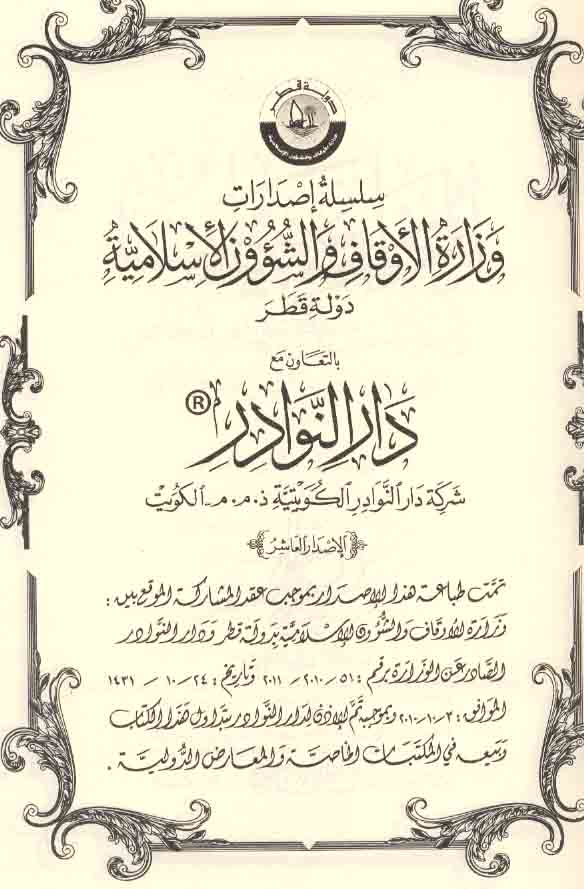 دولة قطر
وزارة الأوقاف والشؤون الإسلامية
سلسلة إصدارات
وزارة الأوقاف والشؤون الإسلامية
دولة قطر
بالتعاون مع
دار النوادر ®
شركة دار النوادر الكويتية ذ.م.م - الكويت
الإصدار العاشر
تمت طباعة هذا الإصدار بموجب عقد المشاركة الموقع بين :
وزارة الأوقاف والشؤون الإسلامية بدولة قطر ودار النوادر
الصادر عن الوزارة برقم : ٥١ / ٢٠١٠ / ٢٠١١ وتاريخ : ٢٤ / ١٠ / ١٤٣١
الموافق : ٣/١٠/٢٠١٠ وبموجبه تم الإذن لدار النوادر بتداول هذا الكتاب
وبيعه في المكتبات الخاصة والمعارض الدولية .